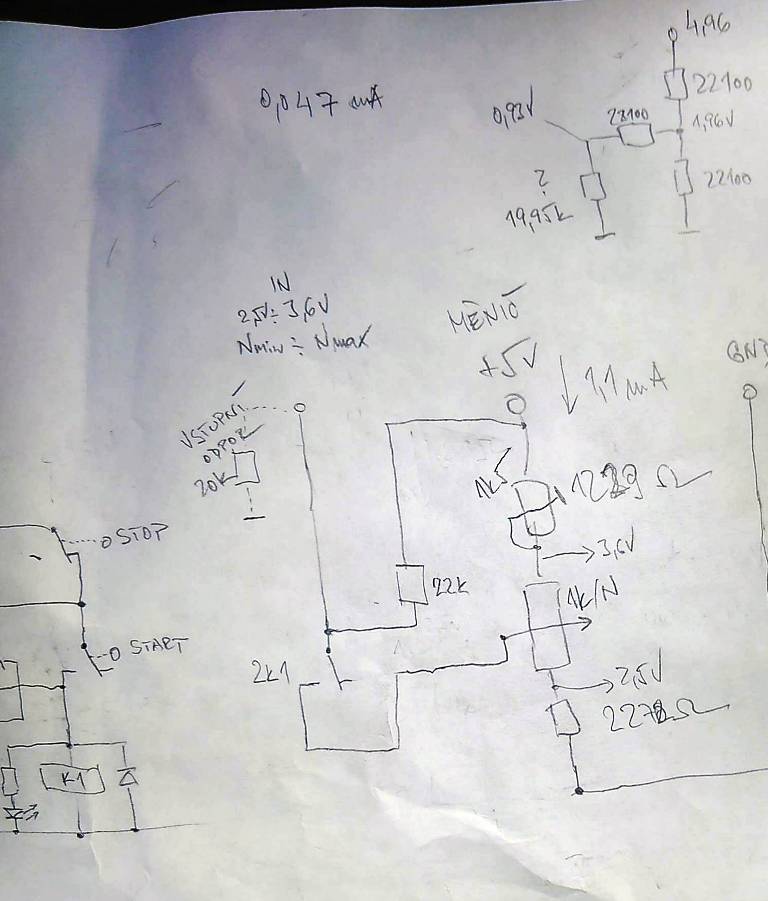 4,96
0,047 mA
22100
0,93V
22100
1,96V
?
19,95k
22100
IN
2,5V ÷ 3,6V
Nmin ÷ Nmax
MĚNIČ
+5V
1,1 mA
GND
VSTUPNÍ
ODPOR
20k
1k5
3,6V
STOP
22k
1k/N
START
2k1
2,5V
K1